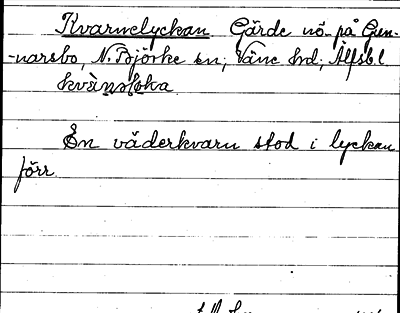 Kvarnelyckan. Gärde nö på Gun-
-narsbo, N. Björke sn; Väne hd; Älfsb. l
kvànsloka
En väderkvarn stod i lyckan
förr.